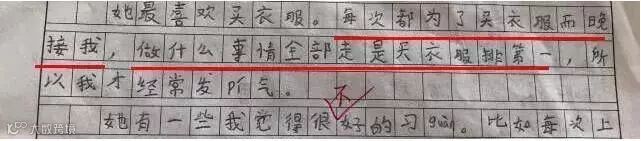 她最喜欢买衣服。每次都为了买衣服而晚
接我，做什么事情全部走是买衣服排第一，所
以我才经常发pí气。
不
她有一些我觉得很好的习guàn。比如每次上
大数跨境